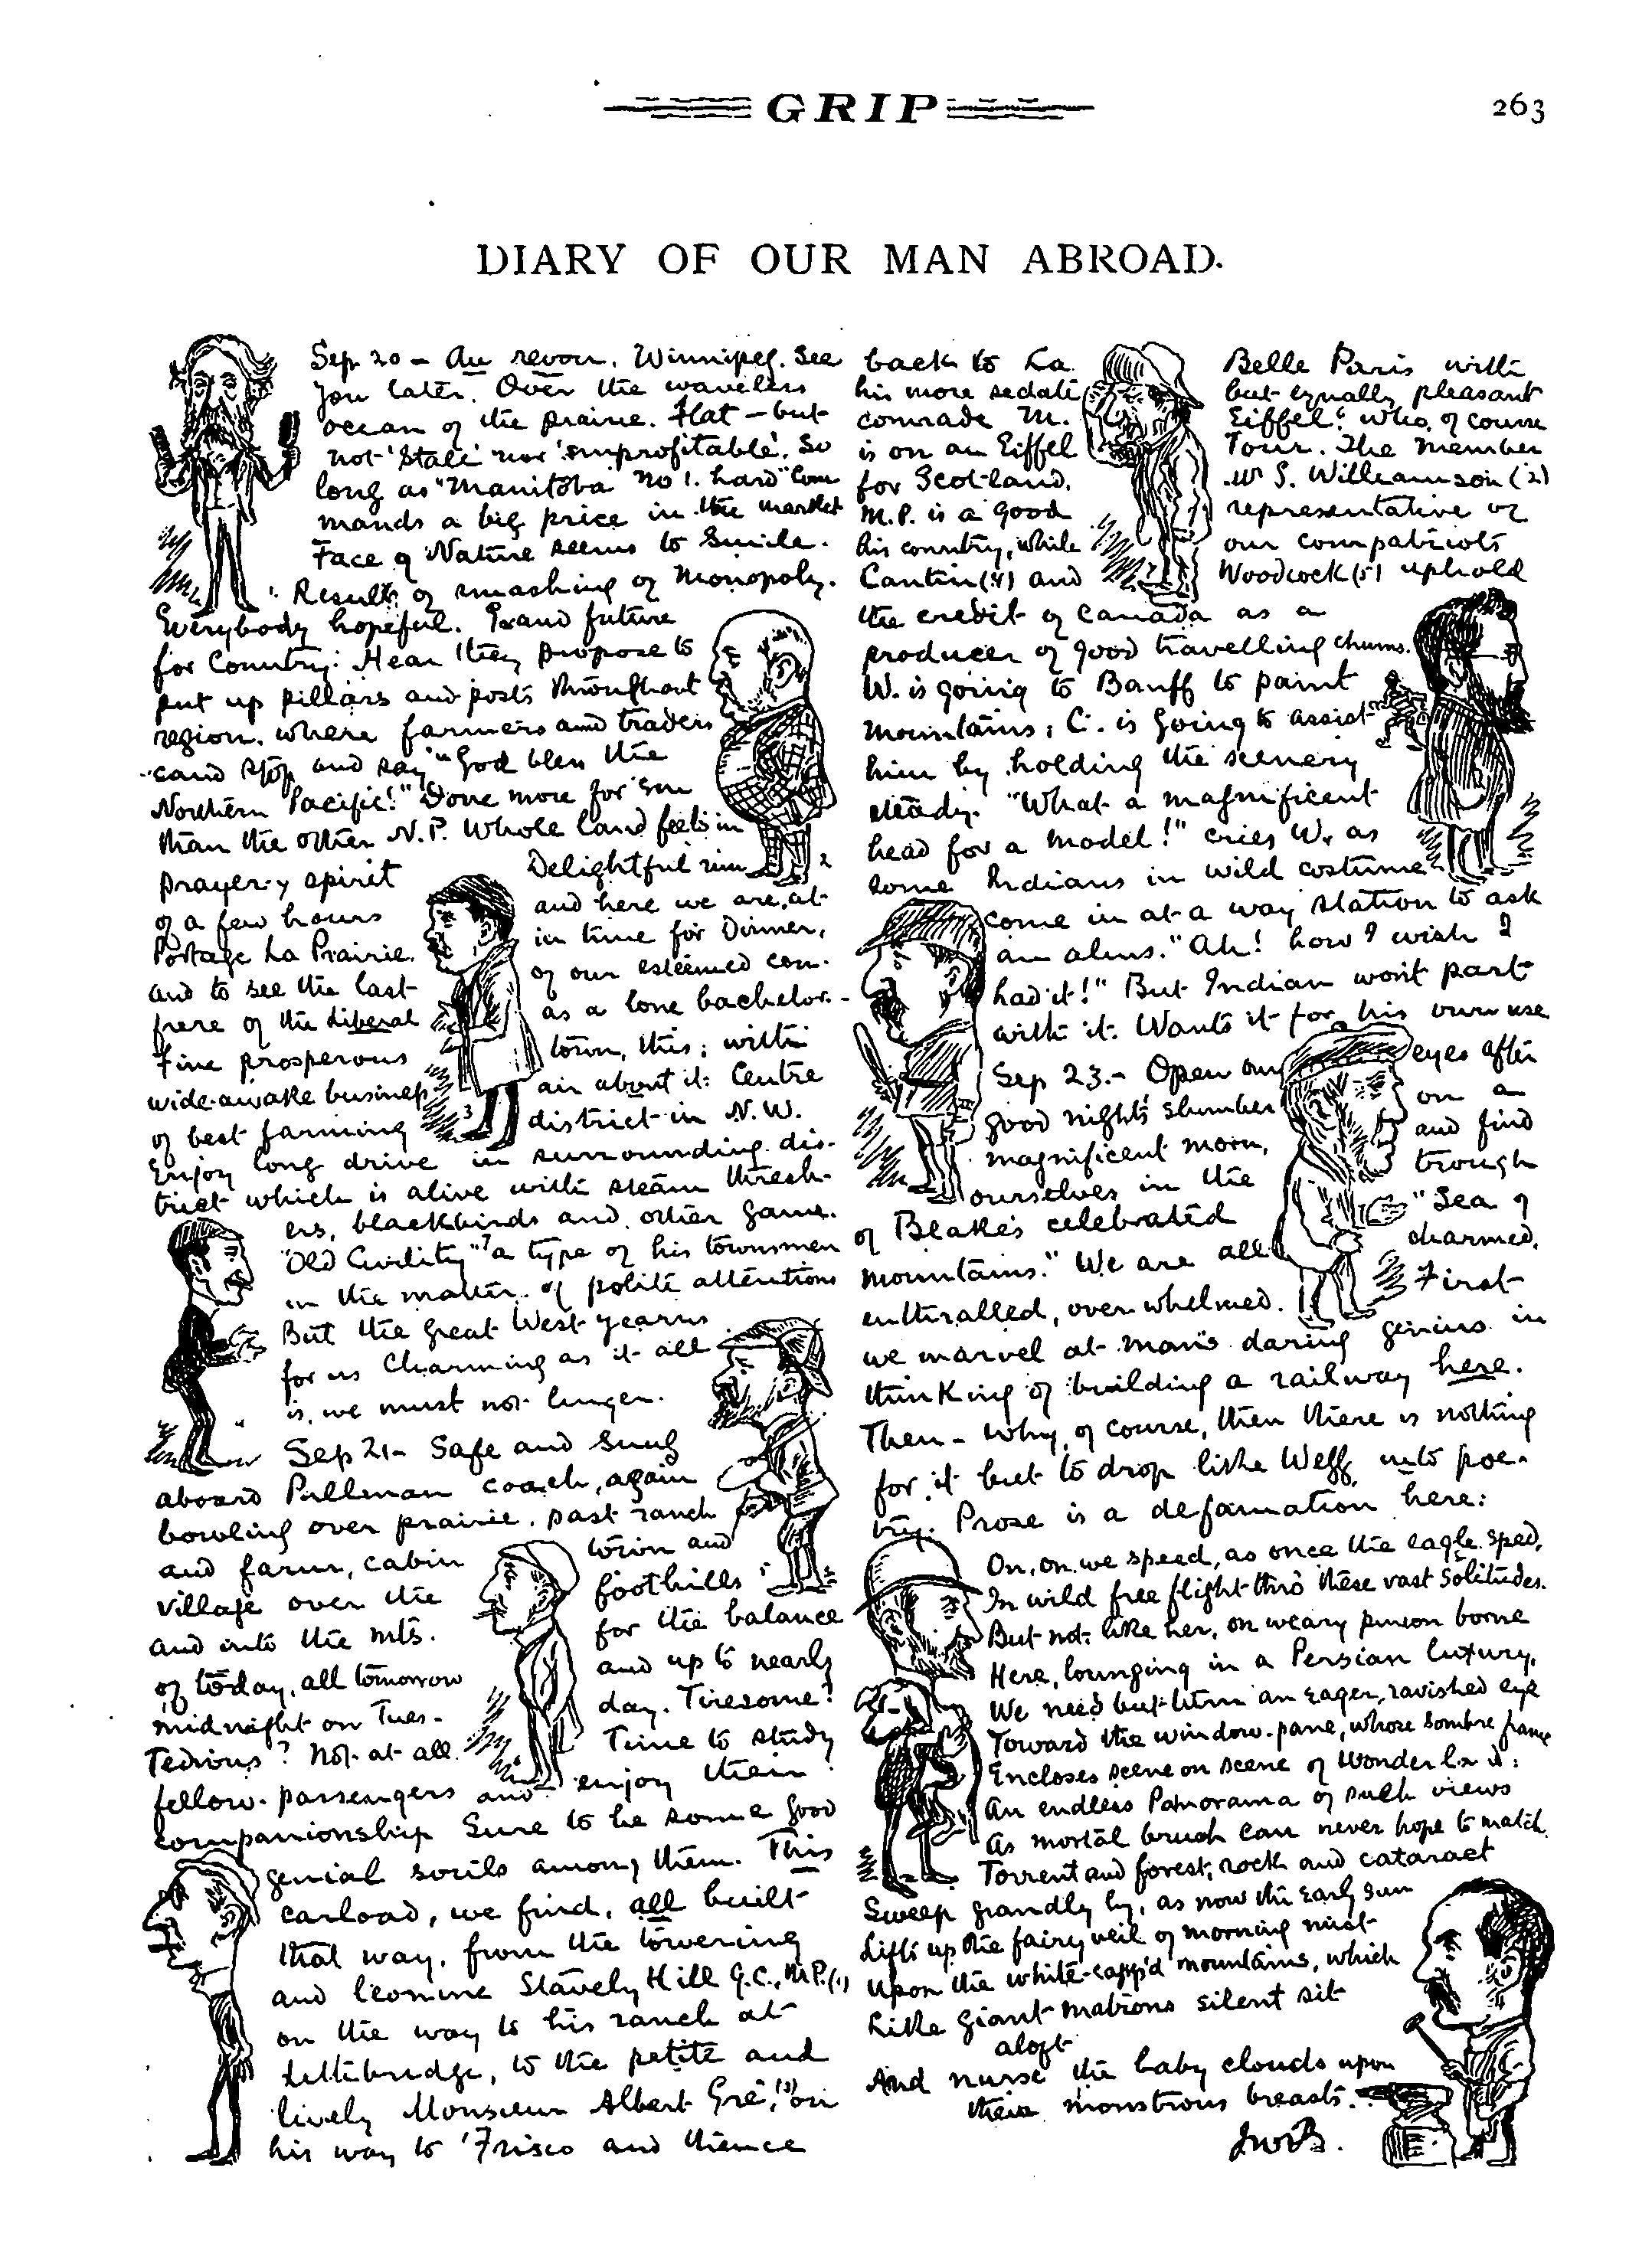 GRIP
263
DIARY OF OUR MAN ABROAD.
Sep. 20 — Au revoir. Winnipeg. See
you later. Over the waveless
ocean of the prairie. Flat — but
not 'Stale' nor 'unprofitable'. So
long as "Manitoba No 1. hard" Com
mands a big price in the market
Face of Nature seems to Smile.
Results of smashing of Monopoly.
Everybody hopeful. Grand future
for Country: Hear they propose to
put up pillars and posts throughout
region. where farmers and traders
cand stop and say "God bless the
Northern Pacific!" Done more for 'em
than the other N.P. Whole land feels in
prayer-y spirit Delightful run
of a few hours and here we are, at
Portage La Prairie. in time for Dinner,
and to see the last of our esteemed con-
frere of the Liberal as a lone bachelor. -
Fine prosperous town, this; with
wide-awake business air about it: Centre
of best farming district in N.W.
Enjoy long drive in surrounding dis-
trict which is alive with steam thresh-
ers, blackbirds and other game.
"Old Civility" 7 a type of his townsmen
in the matter of polite attentions
But the Great West yearns
for us Charming as it all
is, we must not linger.
Sep 21 - Safe and Snug
aboard Pullman coach, again
bowling over prairie. past ranch
and farm, cabin town and
village over the foothills
and into the mts. for the balance
of today, all tomorrow and up to nearly
midnight on Tues- day. Tiresome?
Tedious? Not at all. Time to study
fellow-passengers and enjoy their
companionship Sure to be some good
genial souls among them. This
carload, we find, all built
that way, from the towering
and leonine Stavely Hill Q.C., M.P. (1)
on the way to his ranch at
Lethbridge, to the petite and
lively Monsieur Albert Gré, (3) on
his way to 'Frisco and thence
back to La Belle Paris with
his more sedate but equally pleasant
comrade M. Eiffel: who, of course
is on an Eiffel Tour. The member
for Scotland. W S. Williamson (2)
M.P. is a good representative of
his country, while our compatriots
Cantin (4) and Woodcock (5) uphold
the credit of Canada as a
producer of good travelling chums.
W. is going to Banff to paint
mountains; C. is going to assist
him by holding the scenery
steady. "What a magnificent
head for a model!" cries W. as
some Indians in wild costume
come in at a way station to ask
an alms. "Ah! how I wish I
had it!" But Indian won't part
with it. Wants it for his own use
Sep 23.- Open our eyes after
good night's slumber on a
magnificent morn, and find
ourselves in the trough
of Blake's celebrated "Sea of
mountains." We are all charmed,
enthralled, overwhelmed. First
we marvel at man's daring genius in
thinking of building a railway here.
Then - why, of course, then there is nothing
for it but to drop like Wegg into poe-
try. Prose is a defamation here:
On, on we speed, as once the eagle sped,
In wild free flight thro' these vast Solitudes.
But not, like her, on weary pinion borne
Here, lounging in a Persian luxury,
We need but turn an eager, ravished eye
Toward the window-pane, whose sombre frame
Encloses scene on scene of Wonderland:
An endless Panorama of such views
As mortal brush can never hope to match.
Torrent and forest, rock and cataract
Sweep grandly by, as now the early Sun
Lifts up the fairy veil of morning mist
Upon the white-capp'd mountains, which
Like giant matrons silent sit
aloft
And nurse the baby clouds upon
their monstrous breasts.
JWB.